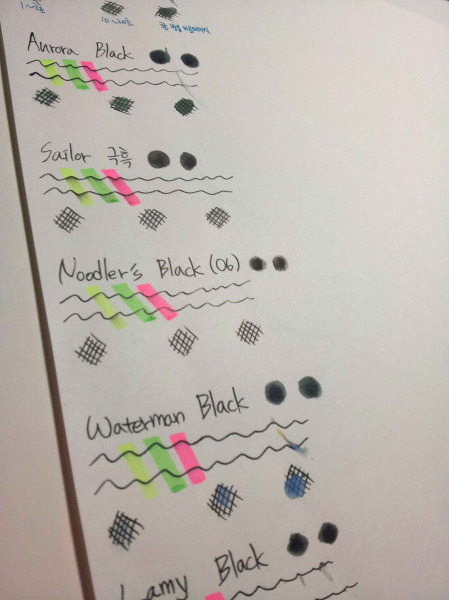 1~2초 10~20초
Aurora Black
Sailor 극흑
Noodler's Black (06)
Waterman Black
Lamy Black